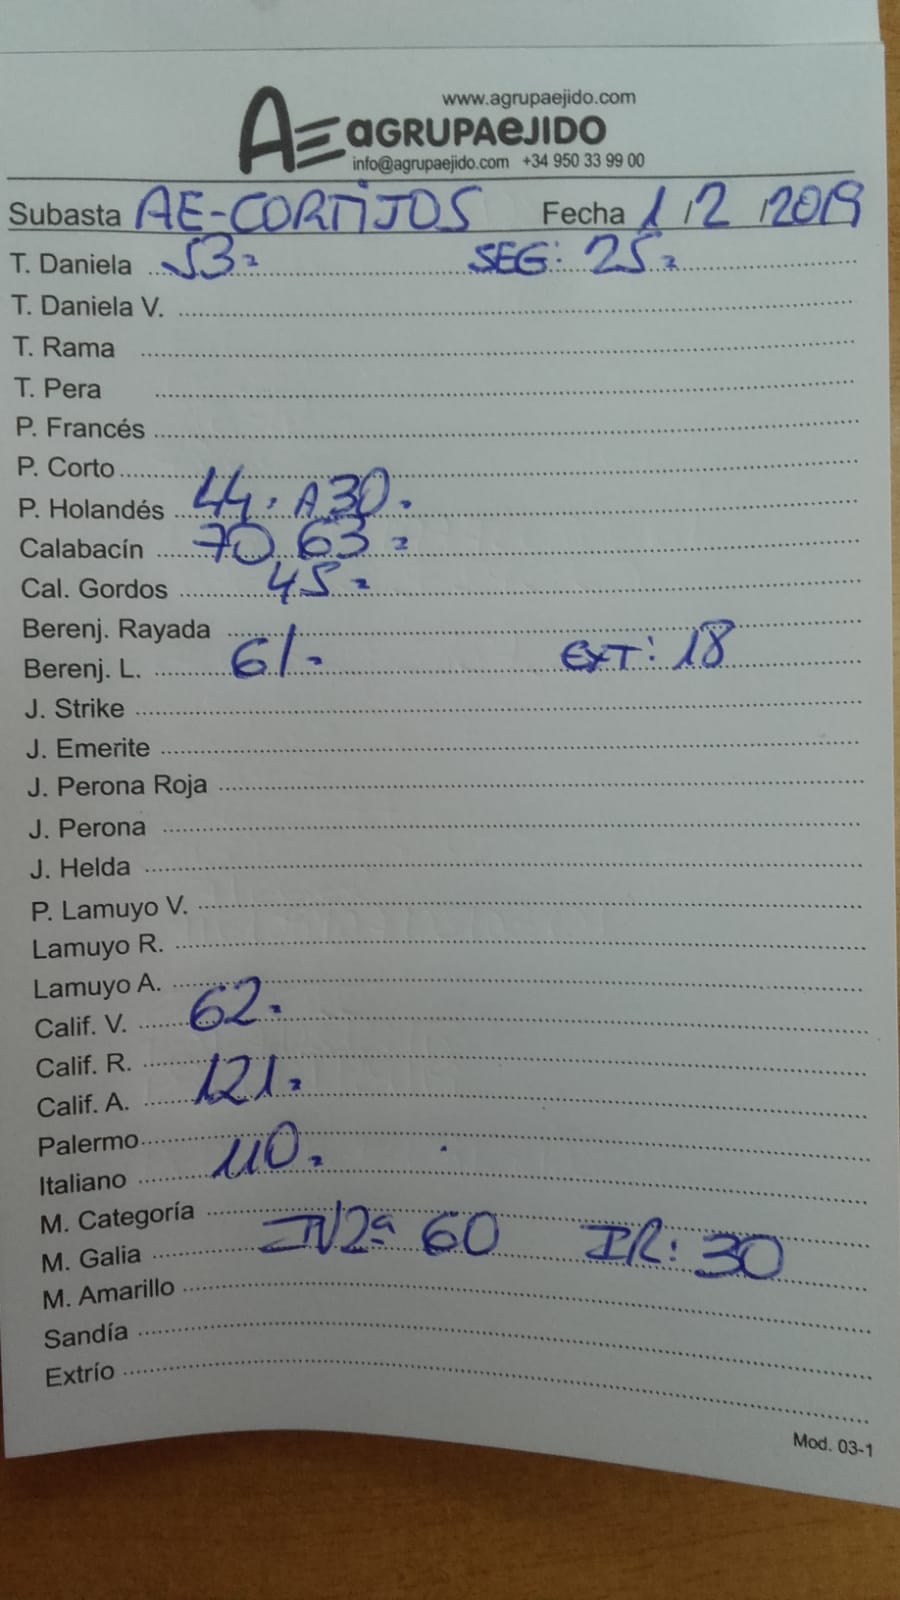 www.agrupaejido.com
AE aGRUPAeJIDO
info@agrupaejido.com +34 950 33 99 00
Subasta AE-CORTIJOS Fecha 1/2/2019
T. Daniela 53 SEG: 25
T. Daniela V.
T. Rama
T. Pera
P. Francés
P. Corto
P. Holandés 44 A 30
Calabacín 70 63
Cal. Gordos 45
Berenj. Rayada
Berenj. L. 61 EXT: 18
J. Strike
J. Emerite
J. Perona Roja
J. Perona
J. Helda
P. Lamuyo V.
Lamuyo R.
Lamuyo A.
Calif. V. 62
Calif. R.
Calif. A. 121
Palermo
Italiano 110
M. Categoría
M. Galia IN2ª 60 IR: 30
M. Amarillo
Sandía
Extrío
Mod. 03-1